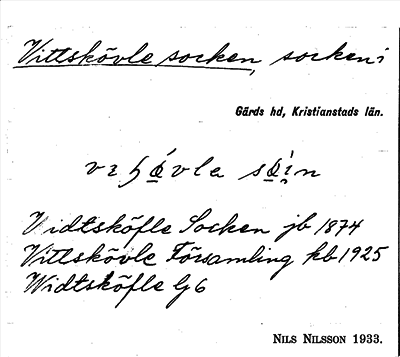 Vittskövle socken, socken i
Gärds hd, Kristianstads län.
Vidtsköfle Socken jb 1874
Vittskövle Församling kb 1925
Widtsköfle Gj 6
NILS NILSSON 1933.